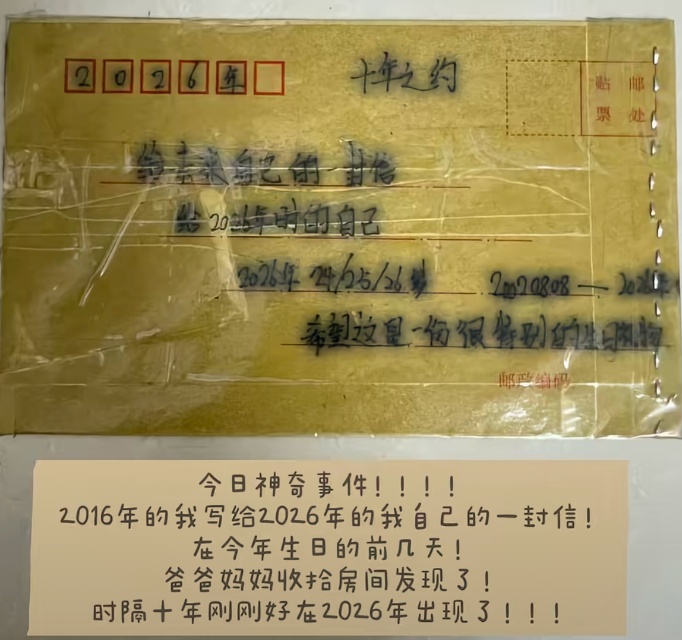 2026年
十年之约
贴 邮
票 处
给未来自己的一封信
给2026年时的自己
2026年 24/25/26岁
20020808—2026年
希望这是一份很特别的生日礼物
邮政编码
今日神奇事件！！！！
2016年的我写给2026年的我自己的一封信！
在今年生日的前几天！
爸爸妈妈收拾房间发现了！
时隔十年刚刚好在2026年出现了！！！